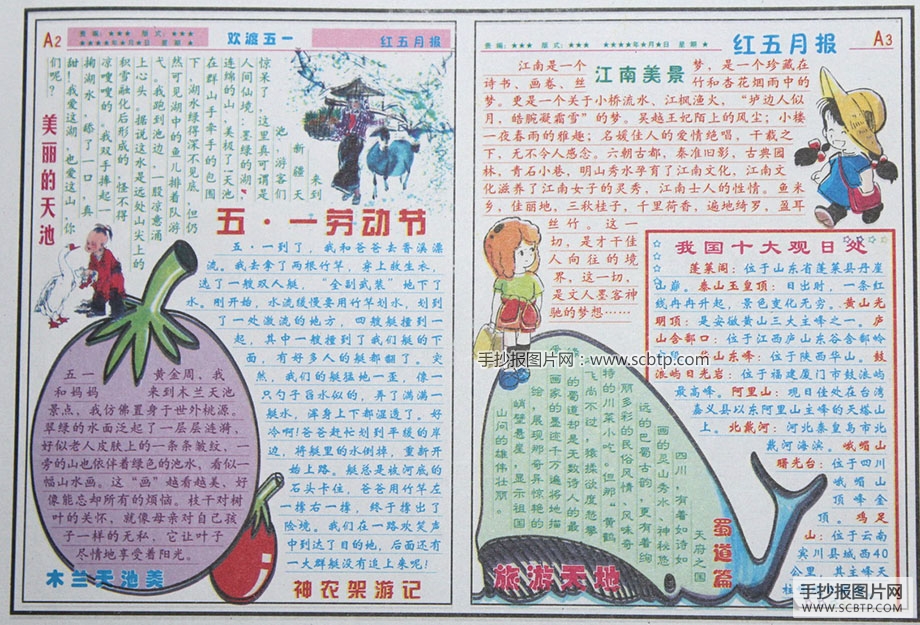 A2
责 编：★★★ 版 式：★★★
★★★★年★月★日 星 期 ★
欢渡五一
红五月报
新疆天
池，游客们
来到
惊呆了，这里真可谓是
人间仙境：墨绿的湖，
连绵的山，美极了！天池
在群山手牵手的包围
下，湖水绿得深不见底，但仍
然可见湖中的鱼儿排着队游
弋。我跑到池边，一股凉意涌
上心头。据说这水是远处山尖上的
积雪融化后形成的，怪不得
凉嗖的。我双手捧起一
掬湖水，舔了一口，真
甜！我爱这湖，也爱这山，你
们呢？
美丽的天池
五·一劳动节
五·一到了，我和爸爸去香溪漂
流。我去拿了两根竹竿，穿上救生衣，
选了一艘双人艇，“全副武装”地下了
水。刚开始，水流缓慢要用竹竿划水，划到
了一处激流的地方，四艘艇撞到一
起，其中一艘撞到了我们艇的下
面，有好多人的艇都翻了。突
然，我们的艇猛地一歪，像一
只勺子舀水似的，弄了满满一
艇水，浑身上下都湿透了。好
冷啊！爸爸赶忙划到平缓的岸
边，将艇里的水倒掉，重新开
始上路。艇总是被河底的
石头卡住，爸爸用竹竿左
一撑右一撑，终于撑出了
险境。我们在一路欢笑声
中到达了目的地，后面还有
一大群艇没有追上来呢！
神农架游记
五一 黄金周，我
和妈妈 来到木兰天池
景点，我仿佛置身于世外桃源。
翠绿的水面泛起了一层层涟漪，
好似老人皮肤上的一条条皱纹，一
旁的山也依伴着绿色的池水，看似一
幅山水画。这“画”越看越美，好
像能忘却所有的烦恼。枝干对树
叶的关怀，就像母亲对自己孩
子一样的无私，它让叶子
尽情地享受着阳光。
木兰天池美
责 编：★★★ 版 式：★★★ ★★★★年★月★日 星 期 ★
红五月报
A3
江南美景
江南是一个 梦，是一个珍藏在
诗书、画卷、丝 竹和杏花烟雨中的
梦。更是一个关于小桥流水、江枫渔火，“垆边人似
月，皓腕凝霜雪”的梦。吴越王妃陌上的风尘；小楼
一夜春雨的雅趣；名媛佳人的爱情绝唱，千载之
下，无不令人感念。六朝古都，秦淮旧影，古典园
林，青石小巷，明山秀水孕育了江南文化，江南文
化滋养了江南女子的灵秀，江南士人的性情。鱼米
乡，佳丽地，三秋桂子，千里荷香，遍地绮罗，盈耳
丝竹。这一
切，是才子佳
人向往的境
界，这一切，
是文人墨客神
驰的梦想……
我国十大观日处
蓬莱阁：位于山东省蓬莱县丹崖
山崖。泰山玉皇顶：日出时，一条红
线冉冉升起，景色变化无穷。黄山光
明顶：是安徽黄山三大主峰之一。庐
山含鄱口：位于江西庐山东谷含鄱岭
山东峰：位于陕西华山。鼓
浪屿日光岩：位于福建厦门市鼓浪屿
最高峰。阿里山：观日佳处在台湾
嘉义县以东阿里山主峰的天塔山
上。北戴河：河北秦皇岛市北
戴河海滨。峨嵋山
曙光台：位于四川
峨嵋山
顶峰金
顶。鸡足
山：位于云南
宾川县城西40
公里，其主峰天
四川，有着如诗如
画的灵山秀水，神秘悠
远的巴蜀古韵，更有着绚
丽多彩的民俗风情，风味奇
特的川菜小吃。但那“黄鹤
之飞尚不过，猿猱欲度愁攀
的蜀道却是无数诗人的最
画家的墨迹千万遍地描
绘，展现那奇异惊艳的
峭壁悬崖，显示祖国
山间的雄伟壮丽。
天府之国
蜀道篇
旅游天地
手抄报图片网：www.scbtp.com
手抄报图片网
WWW.SCBTP.COM